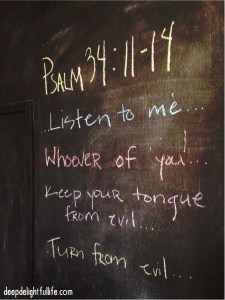 PSALM 34:11-14
...Listen to me...
Whoever of you...
Keep your tongue
from evil....
Turn from evil....
deepdelightfullife.com